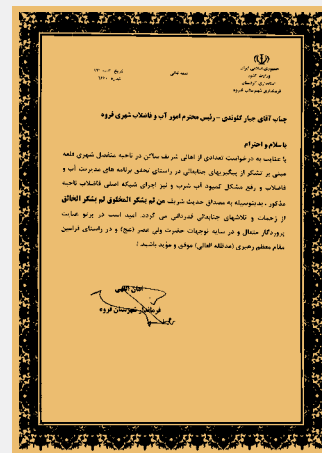 جمهوری اسلامی ایران
وزارت کشور
استانداری کردستان
فرمانداری شهرستان قروه
بسمه تعالی
تاریخ
شماره
جناب آقای جبار گلوندی – رئیس محترم امور آب و فاضلاب شهری قروه
با سلام و احترام
با عنایت به درخواست تعدادی از اهالی شریف ساکن در ناحیه منفصل شهری قلعه
مبنی بر تشکر از پیگیریهای جنابعالی در راستای تحقق برنامه های مدیریت آب و
فاضلاب و رفع مشکل کمبود آب شرب و نیز اجرای شبکه اصلی فاضلاب ناحیه
مذکور ، بدینوسیله به مصداق حدیث شریف من لم یشکر المخلوق لم یشکر الخالق
از زحمات و تلاشهای جنابعالی قدردانی می گردد. امید است در پرتو عنایت
پروردگار متعال و در سایه توجهات حضرت ولی عصر (عج) و در راستای فرامین
مقام معظم رهبری (مدظله العالی) موفق و مؤید باشید.
امان اللهی
فرماندار شهرستان قروه